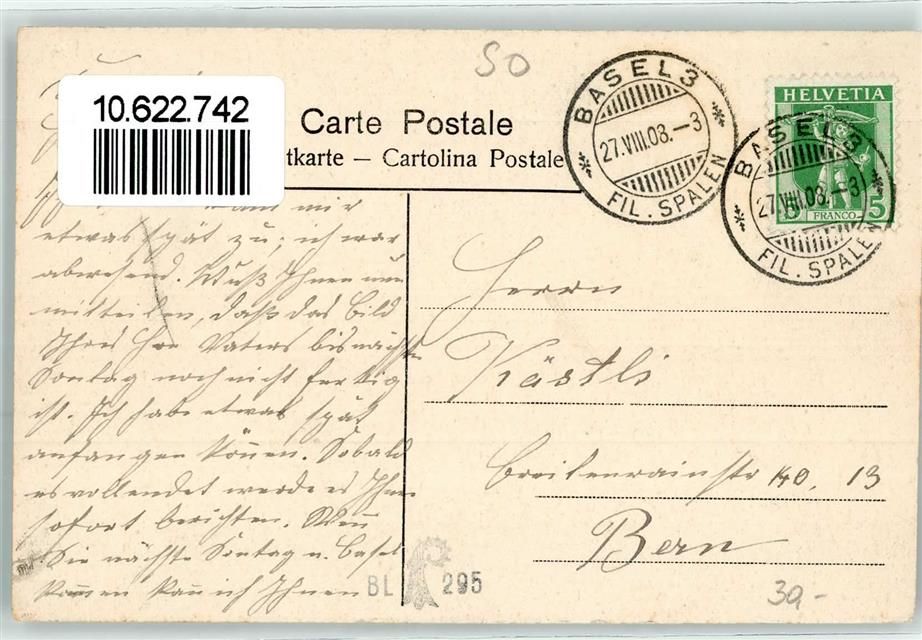 50
10.622.742
Carte Postale
tkarte – Cartolina Postale
BASEL 3
27.VIII.08.–3
FIL. SPALEN
HELVETIA
FRANCO
5
BASEL 3
27.VIII.08.–3
FIL. SPALEN
mir
etwas spät zu; ich war
abwesend. Muß Ihnen nun
mitteilen, daß das Bild
Ihres Hrn Vaters bis nächste
Sonntag noch nicht fertig
ist. Ich habe etwas spät
anfangen können. Sobald
es vollendet werde es Ihnen
sofort berichten. Wenn
Sie nächste Sonntag n. Basel
kommen kann ich Ihnen
Herrn
Kästli
Breitenrainstr No. 13
Bern
BL 295
30,-